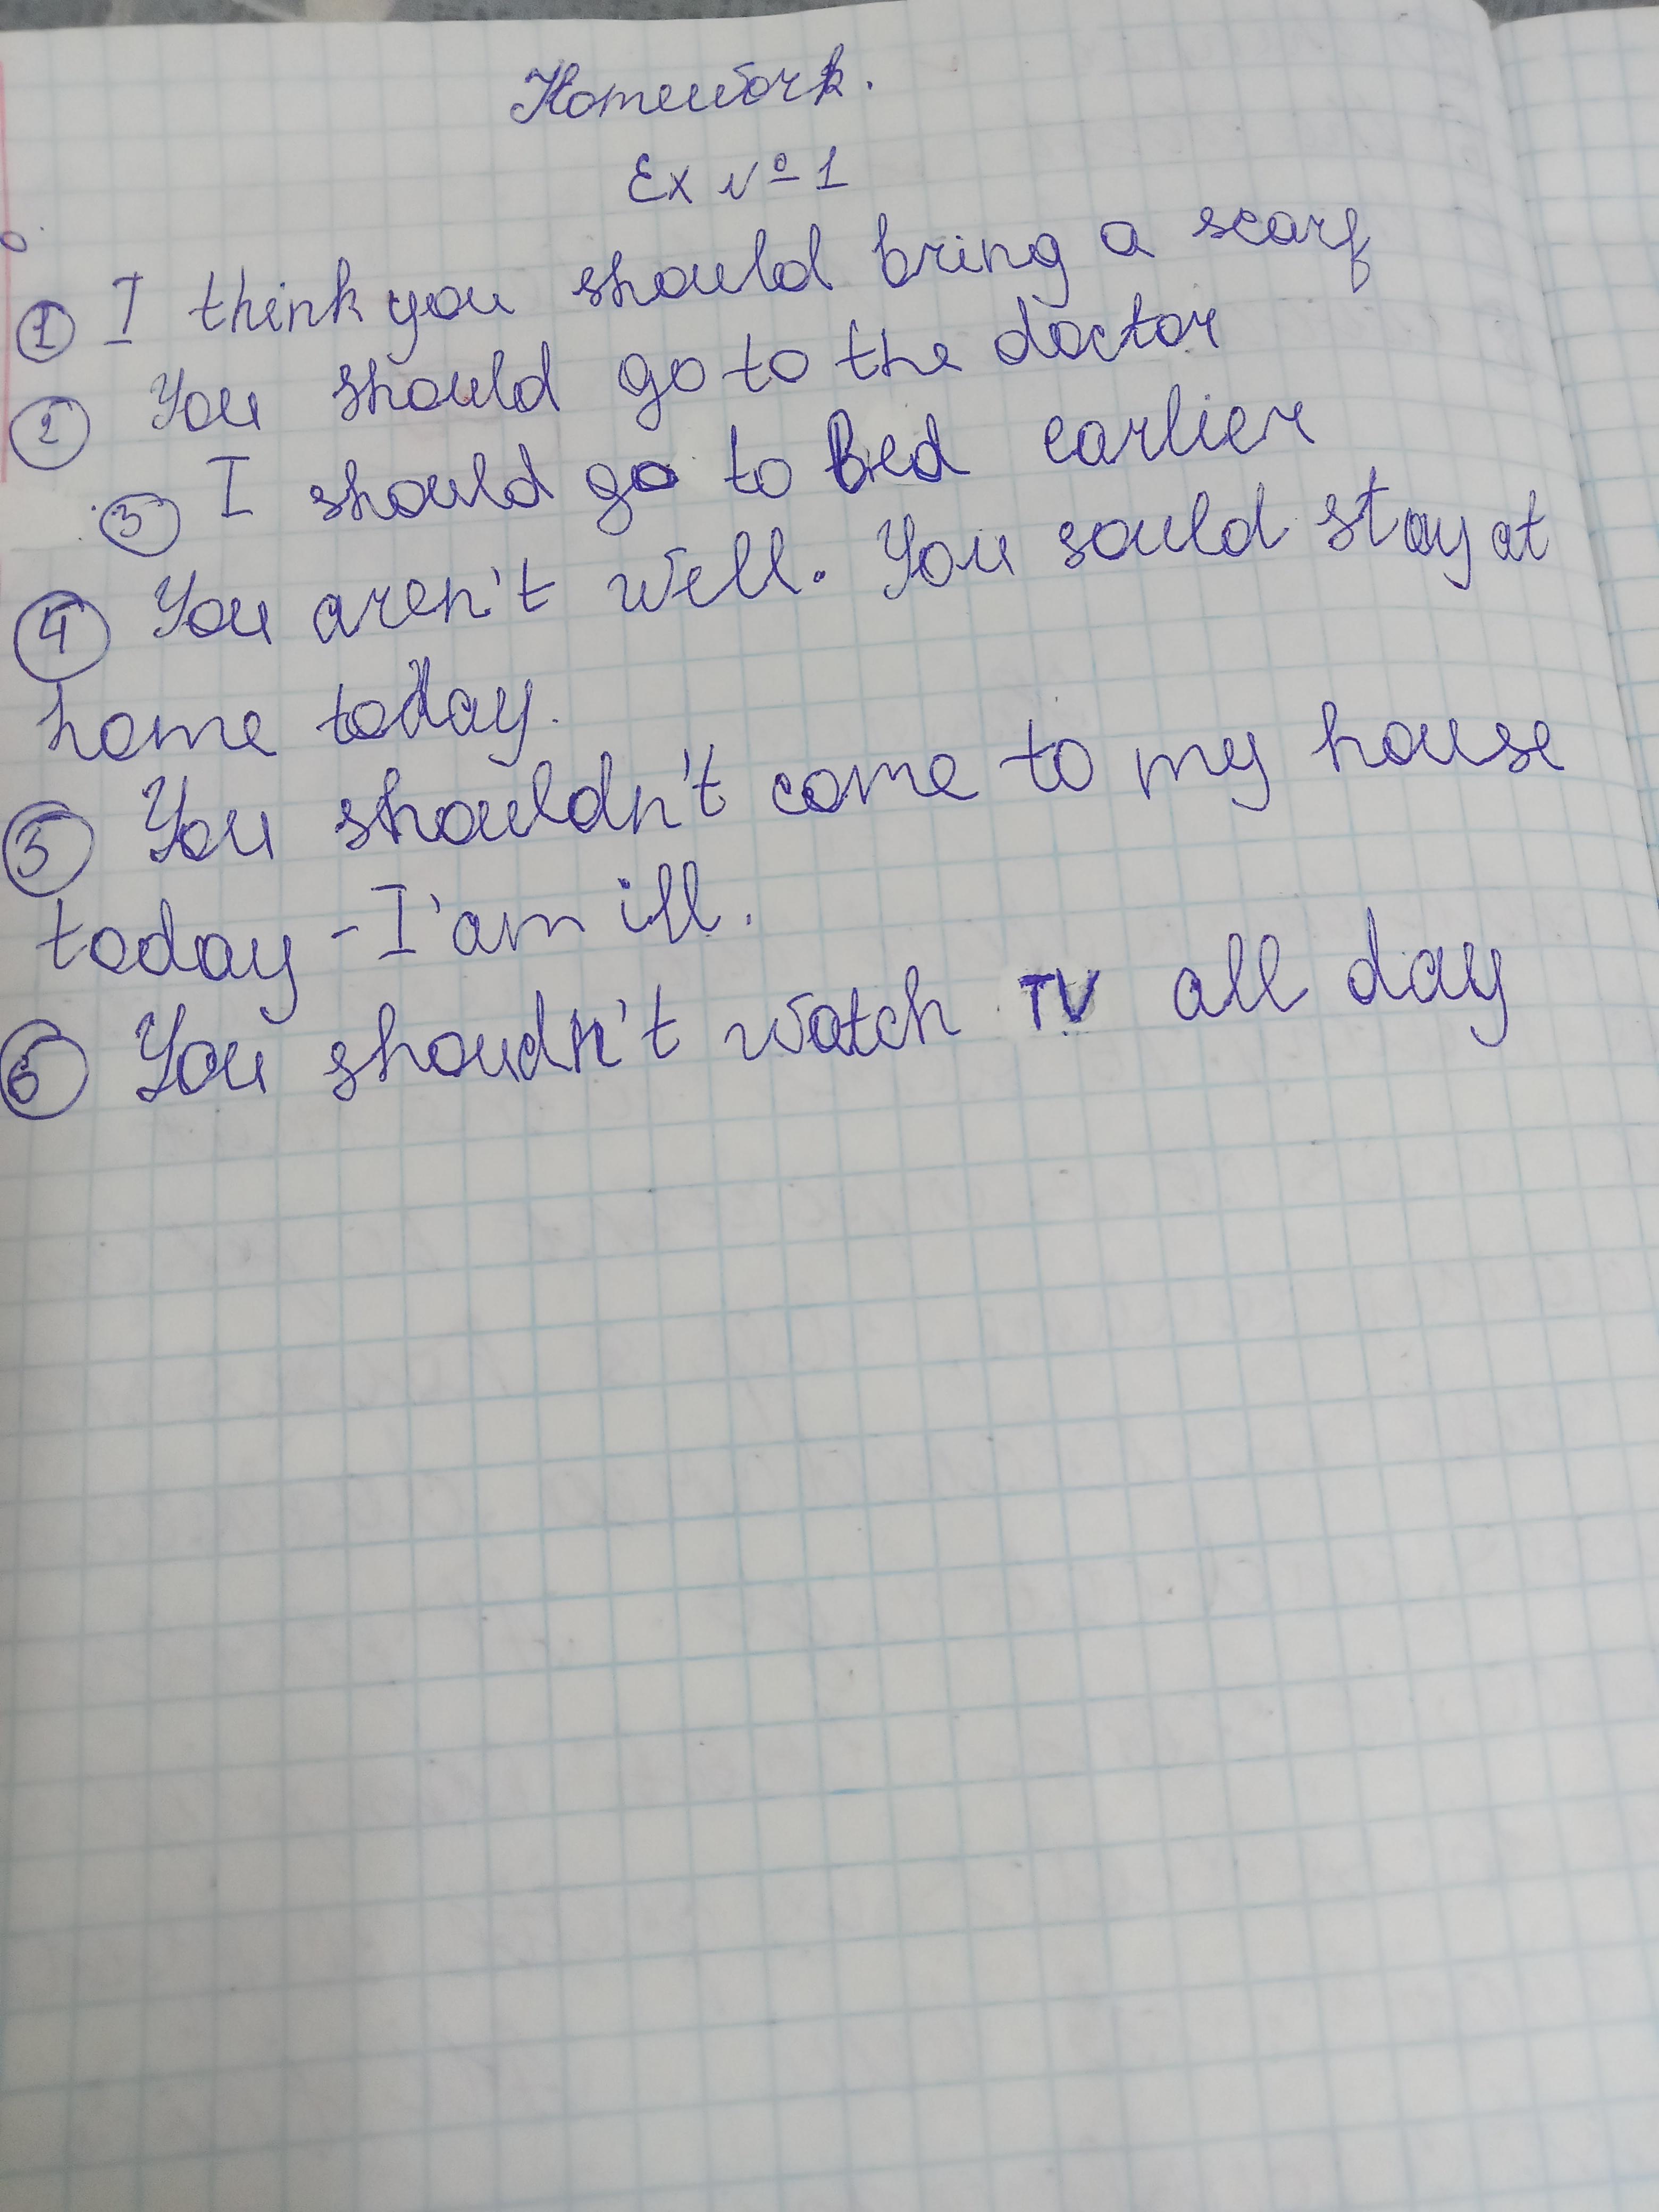 Homework.
Ex №1
① I think you should bring a scarf
② You should go to the doctor
③ I should go to bed earlier
④ You aren't well. You sould stay at
home today.
⑤ You shouldn't come to my house
today - I'am ill.
⑥ You shoudn't watch TV all day